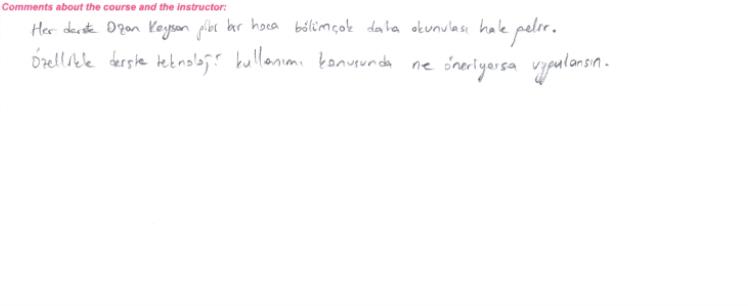 Comments about the course and the instructor:
Her derste Ozan Keysan gibi bir hoca bölümçok daha okunulası hale gelir.
Özellikle derste teknoloji kullanımı konusunda ne öneriyorsa uygulansın.